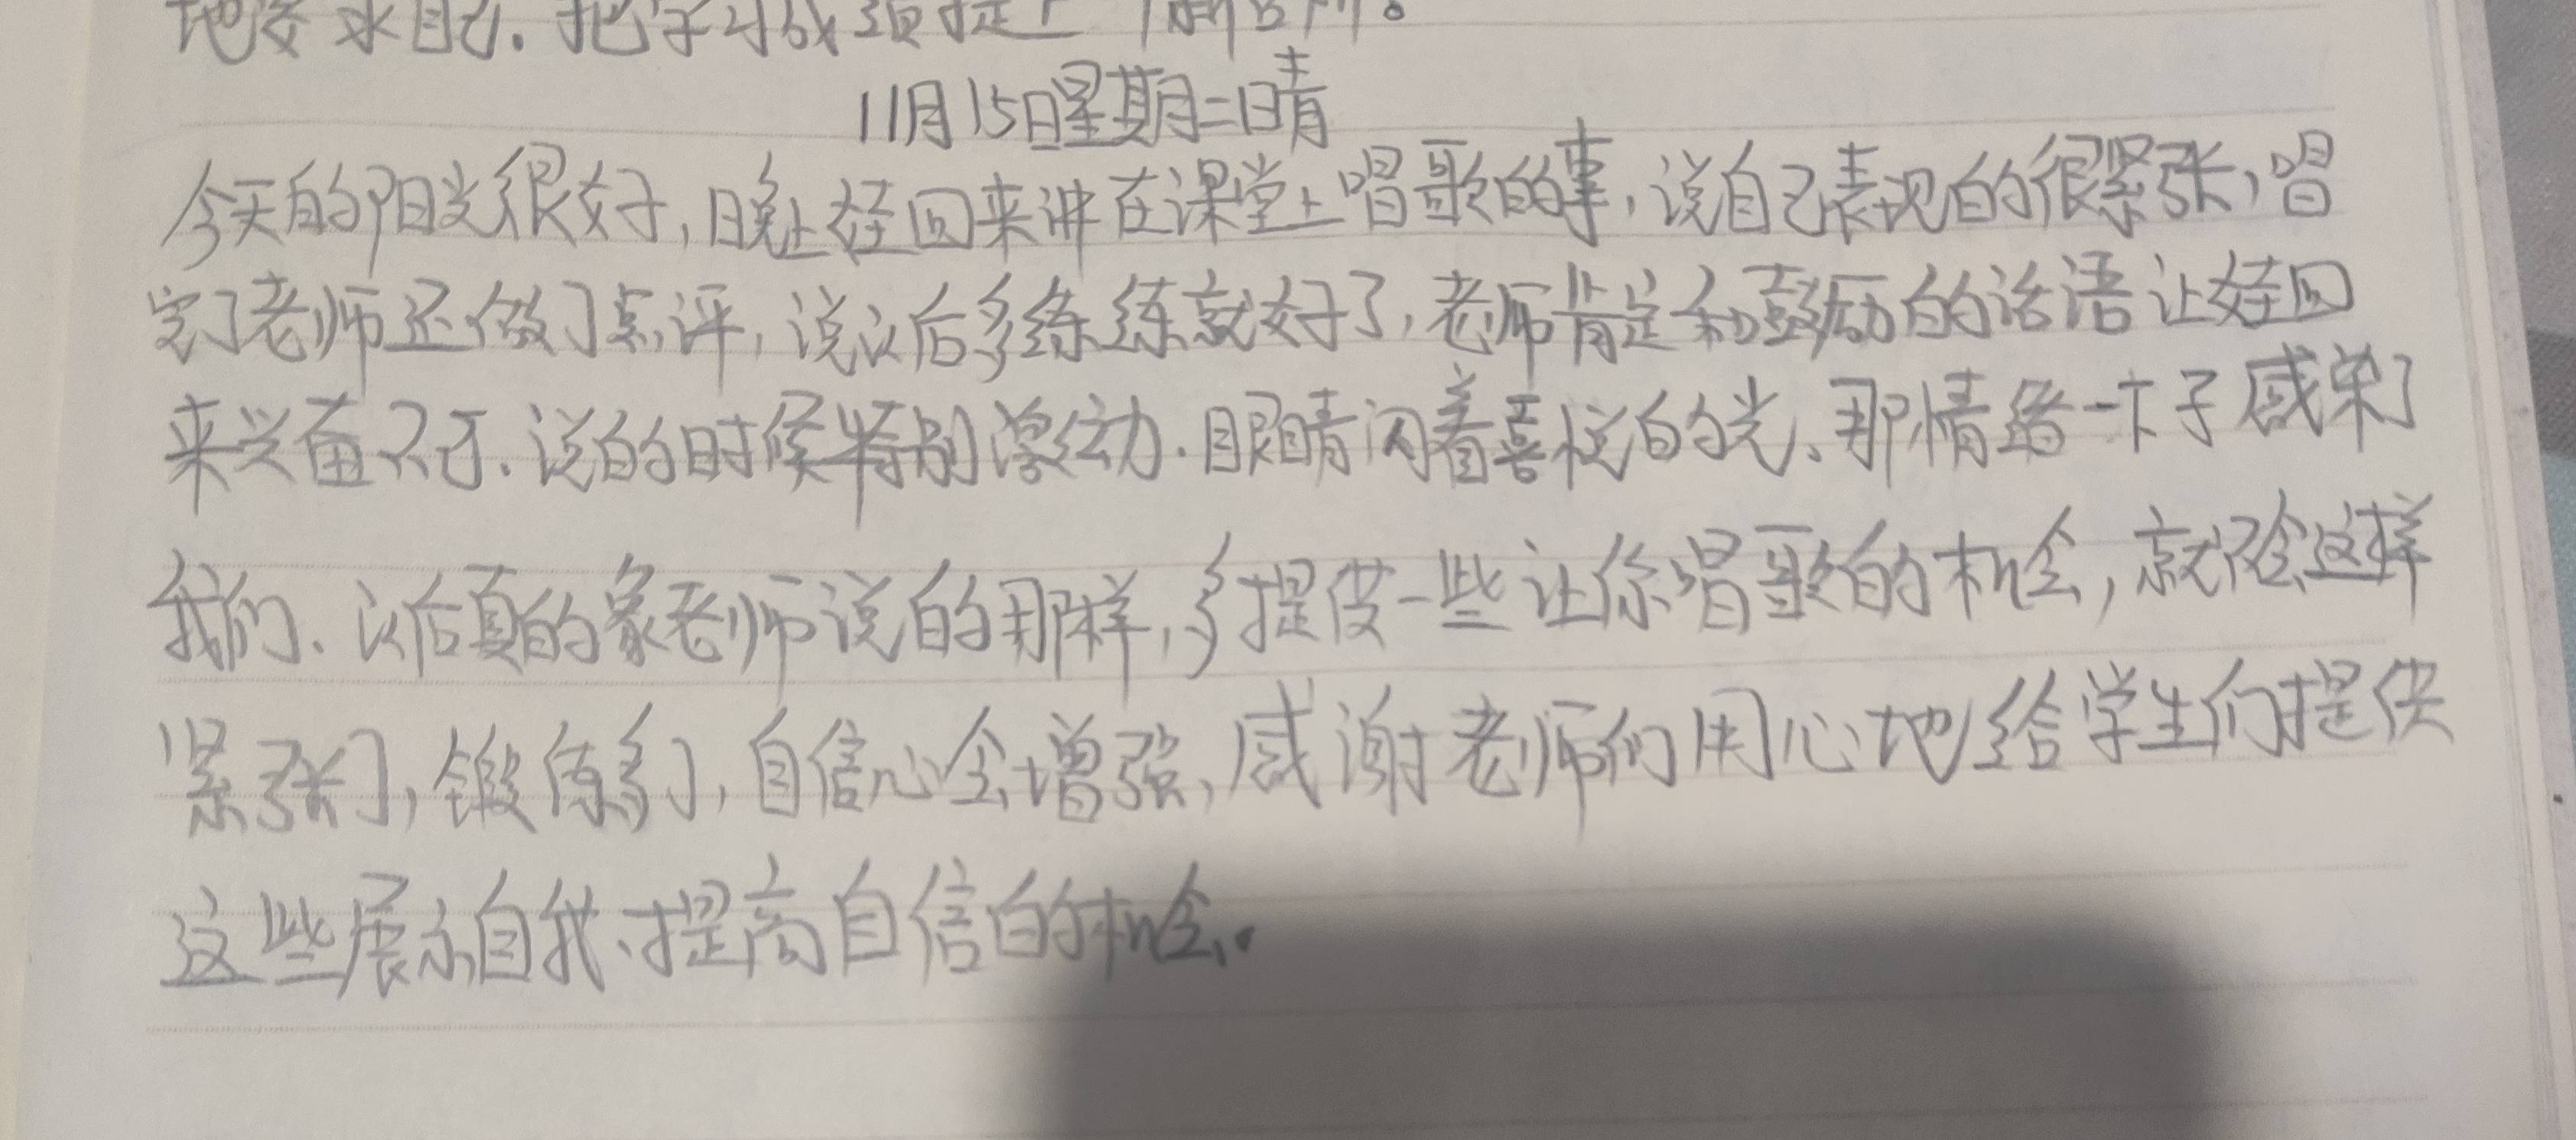 地要求自己.把学习成绩提上
11月15日星期二晴
今天的阳光很好,晚上娃回来讲在课堂上唱歌的事,说自己表现的很紧张,唱
完了老师还做了点评,说以后多练练就好了,老师肯定和鼓励的话语让娃回
来兴奋不已.说的时候特别激动.眼睛闪着喜悦的光、那情绪一下子感染了
我们、以后真的象老师说的那样,多提供一些让你唱歌的机会,就不会这样
紧张了,锻练多了,自信心会增强,感谢老师们用心地给学生们提供
这些展示自我、提高自信的机会.